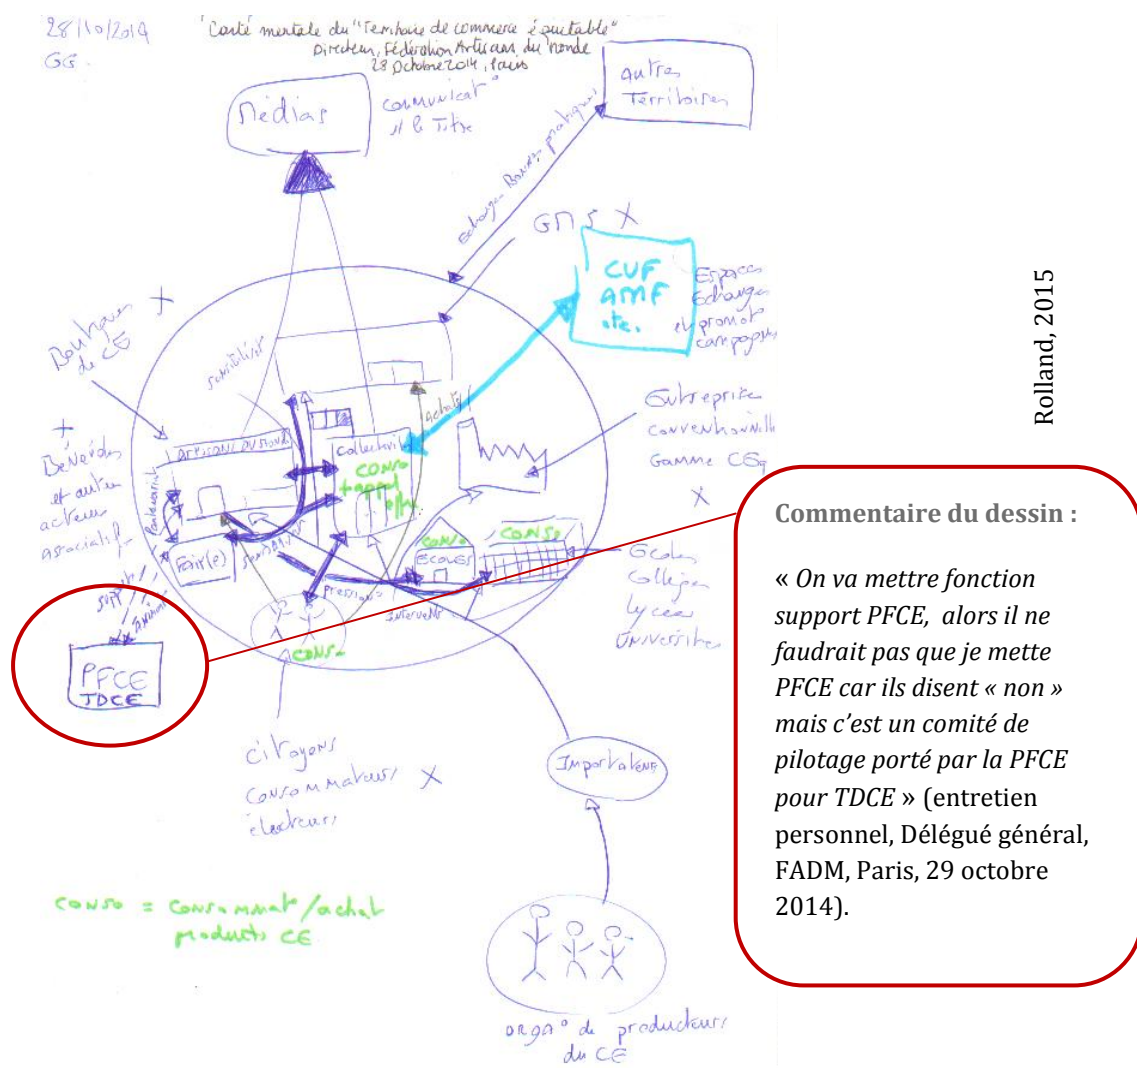 28/10/2014
GG
"Carte mentale du "Territoire de commerce équitable"
Directeur, Fédération Artisans du Monde
28 Octobre 2014, Paris
Médias
communicat°
et le Titre
Autres
Territoires
Echanges Bonnes pratiques
GMS X
CUF
AMF
etc.
Espaces
Echanges
et promot°
campagnes
Rolland, 2015
Boutiques X
de CE
X
Bénévoles
et autres
acteurs
associatifs
ARTISANS DU MONDE
Collectivité
CONSO
+ appel
offre
Achats
Entreprise
conventionnelle
Gamme CEq
X
Partenariat
Fair(e)
CONSO
ECOLES
CONSO
Ecoles
Collèges
Lycées
Universités
pressions
Intervent°
CONSO
PFCE
TDCE
citoyens
consommateurs X
électeurs
Importateurs
CONSO = CONSOMMAT°/achat
products CE
orga° de producteurs
du CE
Commentaire du dessin :
« On va mettre fonction
support PFCE, alors il ne
faudrait pas que je mette
PFCE car ils disent « non »
mais c'est un comité de
pilotage porté par la PFCE
pour TDCE » (entretien
personnel, Délégué général,
FADM, Paris, 29 octobre
2014).